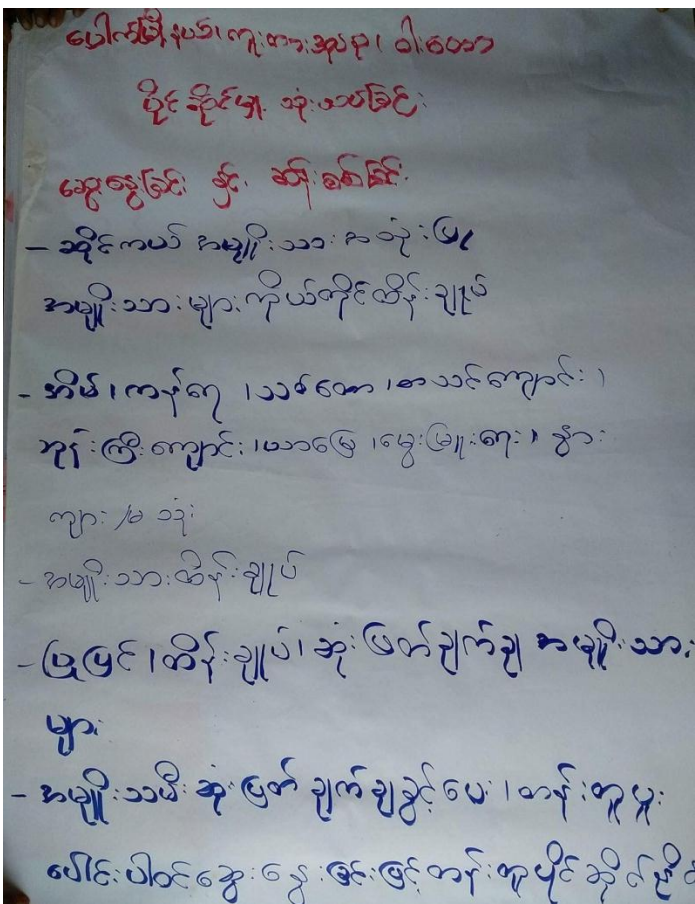 ပေါက်မြို့နယ်၊ ကူးတားအုပ်စု၊ ဝါးတော
ပိုင်ဆိုင်မှု သုံးသပ်ခြင်း
ဆွေးနွေးခြင်း နှင့် ဆန်းစစ်ခြင်း
- ဆိုင်ကယ် အမျိုးသား အသုံးပြု
အမျိုးသားများ ကိုယ်တိုင်ထိန်းချုပ်
- အိမ်၊ ကန်ရေ၊ သစ်တော၊ စာသင်ကျောင်း၊
ဘုန်းကြီးကျောင်း၊ ယာမြေ၊ မွေးမြူရေး၊ နွား
ကျား/မ သုံး
- အမျိုးသားထိန်းချုပ်
- ပြုပြင်၊ ထိန်းချုပ်၊ ဆုံးဖြတ်ချက်ချ အမျိုးသား
များ
- အမျိုးသမီး ဆုံးဖြတ်ချက်ချခွင့်ပေး၊ တန်းတူမှု
ပေါင်းပါဝင်ဆွေးနွေးခြင်းဖြင့် တန်းတူပိုင်ဆိုင်နိုင်